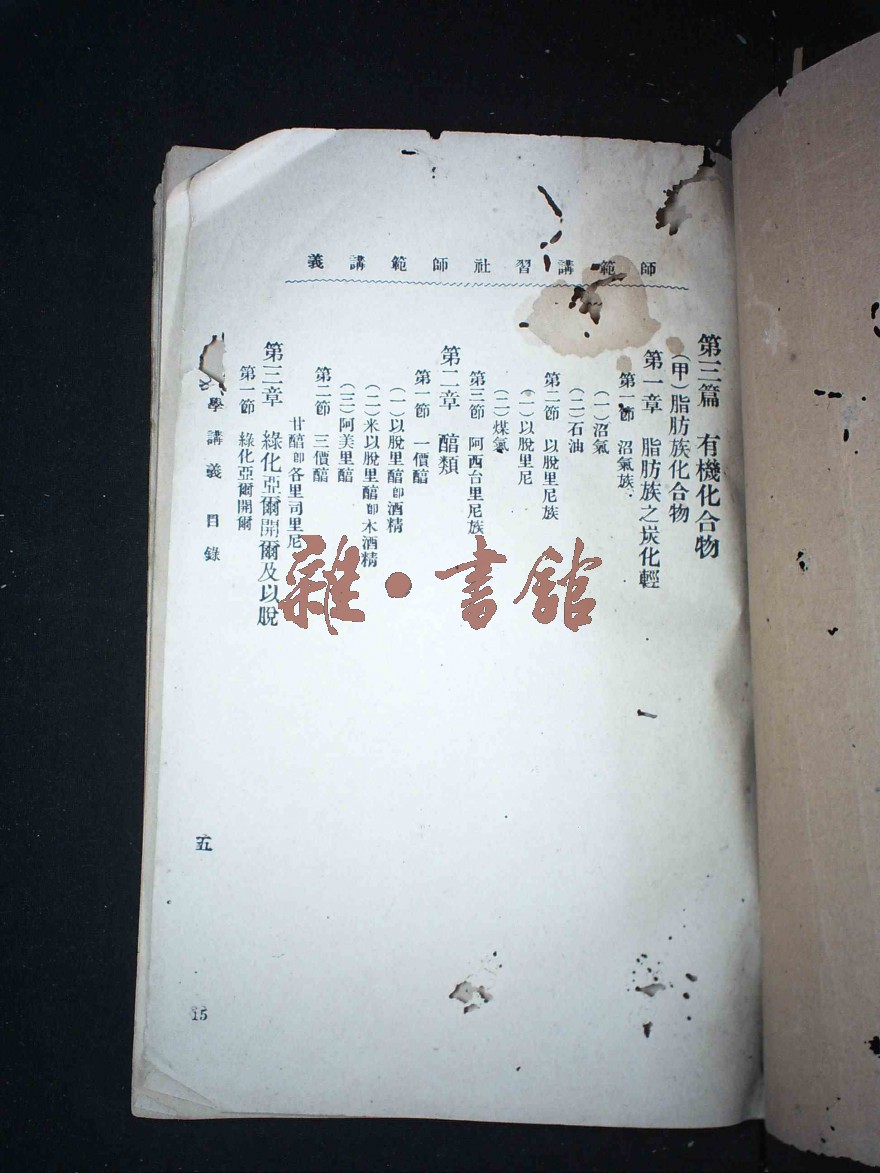 師範講習社師範講義
第三篇 有機化合物
(甲)脂肪族化合物
第一章 脂肪族之炭化輕
第一節 沼氣族
(一)沼氣
(二)石油
第二節 以脫里尼族
(一)以脫里尼
(二)煤氣
第三節 阿西台里尼族
第二章 醕類
第一節 一價醕
(一)以脫里醕卽酒精
(二)米以脫里醕卽木酒精
(三)阿美里醕
第二節 三價醕
甘醕卽各里司里尼
第三章 綠化亞爾開爾及以脫
第一節 綠化亞爾開爾
學講義 目錄
五
15
雜·書館